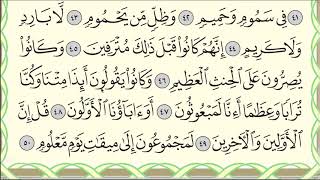 ٤١ فِى سَمُومٍ وَحَمِيمٍ ٤٢ وَظِلٍّ مِّن يَحْمُومٍ ٤٣ لَّا بَارِدٍ
وَلَا كَرِيمٍ ٤٤ إِنَّهُمْ كَانُوا۟ قَبْلَ ذَٰلِكَ مُتْرَفِينَ ٤٥ وَكَانُوا۟
يُصِرُّونَ عَلَى ٱلْحِنثِ ٱلْعَظِيمِ ٤٦ وَكَانُوا۟ يَقُولُونَ أَئِذَا مِتْنَا وَكُنَّا
تُرَابًا وَعِظَٰمًا أَءِنَّا لَمَبْعُوثُونَ ٤٧ أَوَءَابَآؤُنَا ٱلْأَوَّلُونَ ٤٨ قُلْ إِنَّ
ٱلْأَوَّلِينَ وَٱلْـَٔاخِرِينَ ٤٩ لَمَجْمُوعُونَ إِلَىٰ مِيقَٰتِ يَوْمٍ مَّعْلُومٍ ٥٠